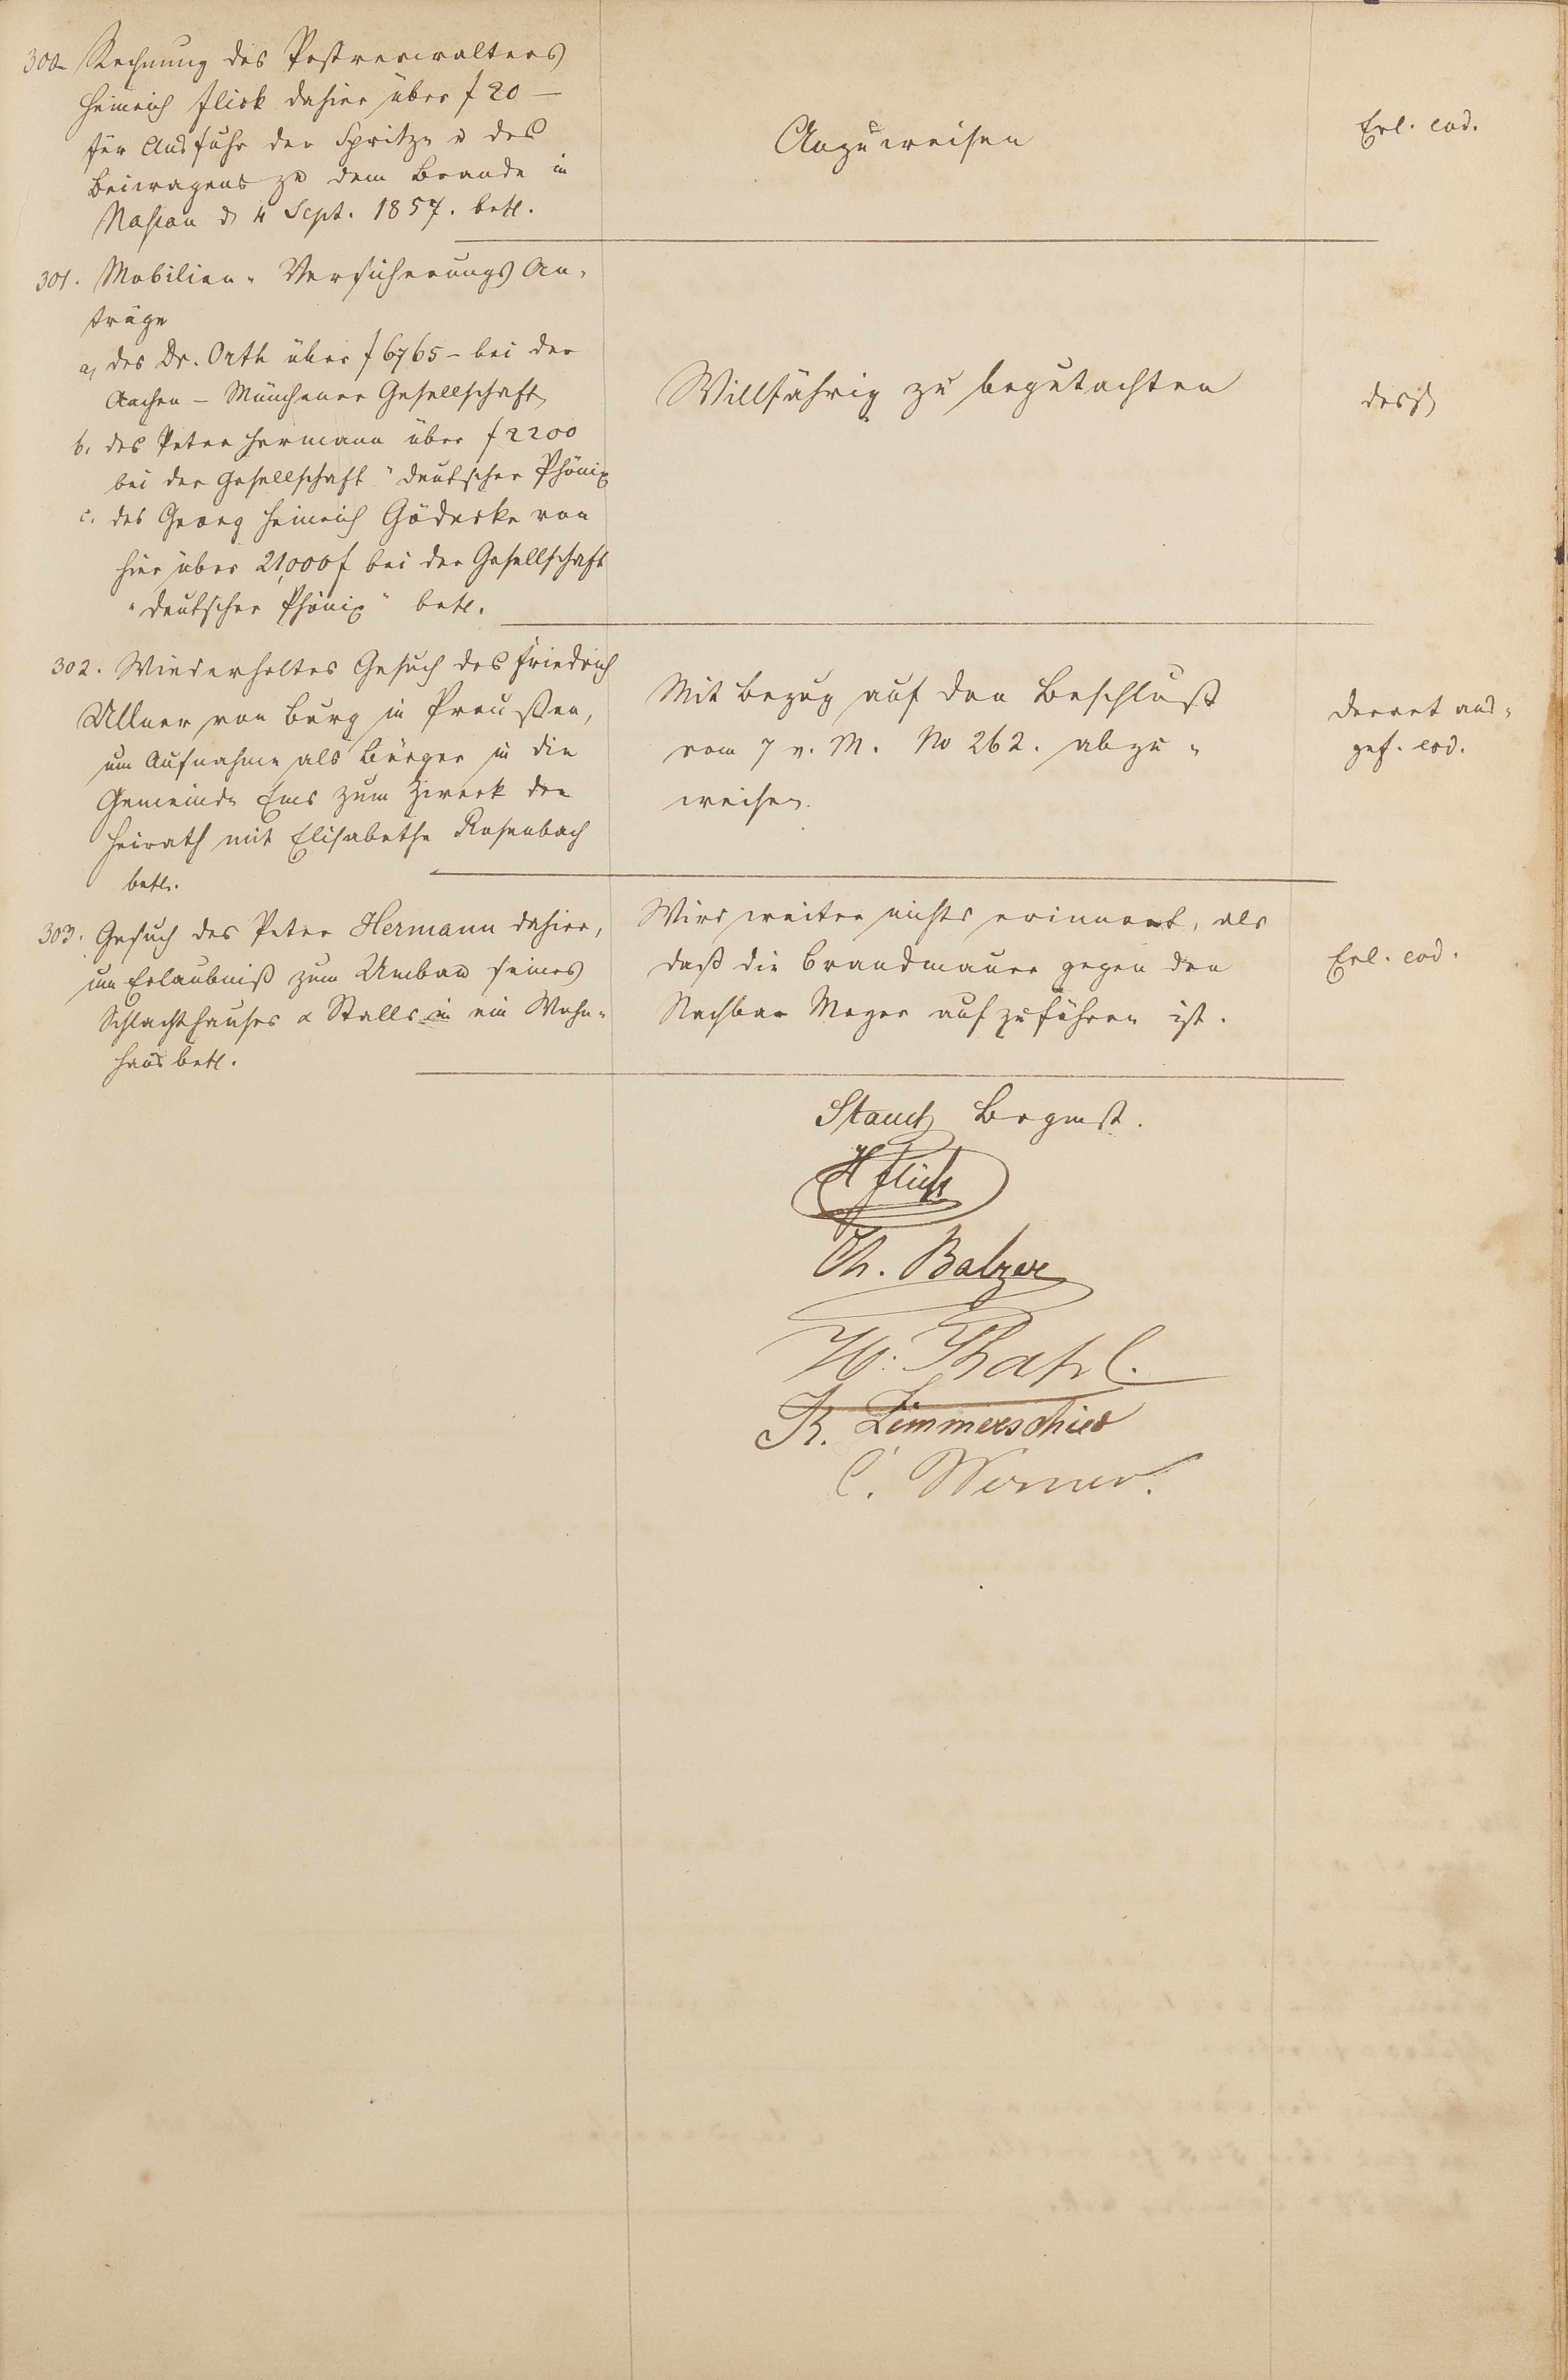 300. Rechnung des Postverwalters
Heinrich Flick dahier über f 20 —
für Ausfuhr der Spritze u des
Beiwagens zu dem Brande in
Nassau d 4 Sept. 1857. betl.
Anzuweisen
Erl. eod.
301. Mobilien-Versicherungs An-
träge
a, des Dr. Orth über f 6765 – bei der
Aachen – Münchener Gesellschaft,
b. des Peter Hermann über f 2200
bei der Gesellschaft "deutscher Phönix
c. des Georg Heinrich Gödecke von
hier über 21,000 f bei der Gesellschaft
"deutscher Phönix" betl.
Willfährig zu begutachten
desgl
302. Wiederholtes Gesuch des Friedrich
Ullner von Burg in Preußen,
um Aufnahme als Bürger in die
Gemeinde Ems zum Zweck der
Heirath mit Elisabethe Rosenbach
betl.
Mit Bezug auf den Beschluß
vom 7 v. M. No 262. abzu-
weisen.
Decret aus-
gef. eod.
303. Gesuch des Peter Hermann dahier,
um Erlaubniß zum Umbau seines
Schlachthauses & Stalls in ein Wohn-
haus betl.
Wird weiter nichts erinnert, als
daß die Brandmauer gegen den
Nachbar Mayer aufzuführen ist.
Erl. eod.
Stauch Brgmst.
H Flick
Th. Balzer
W. Thahl.
K. Zimmerschied
C. Werner.